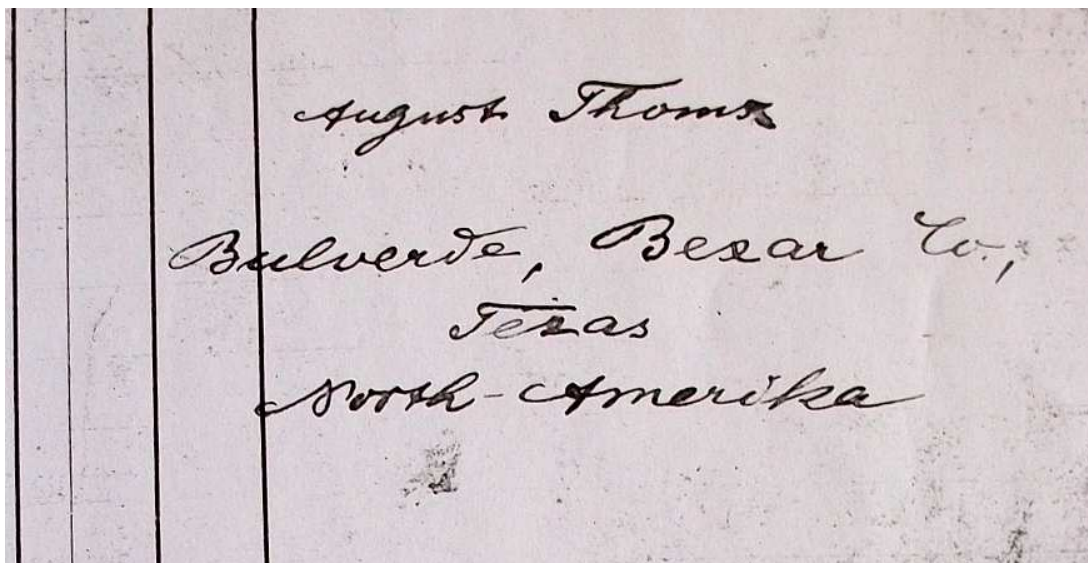 August Thoms
Bulverde, Bexar Co.,
Texas
North-Amerika